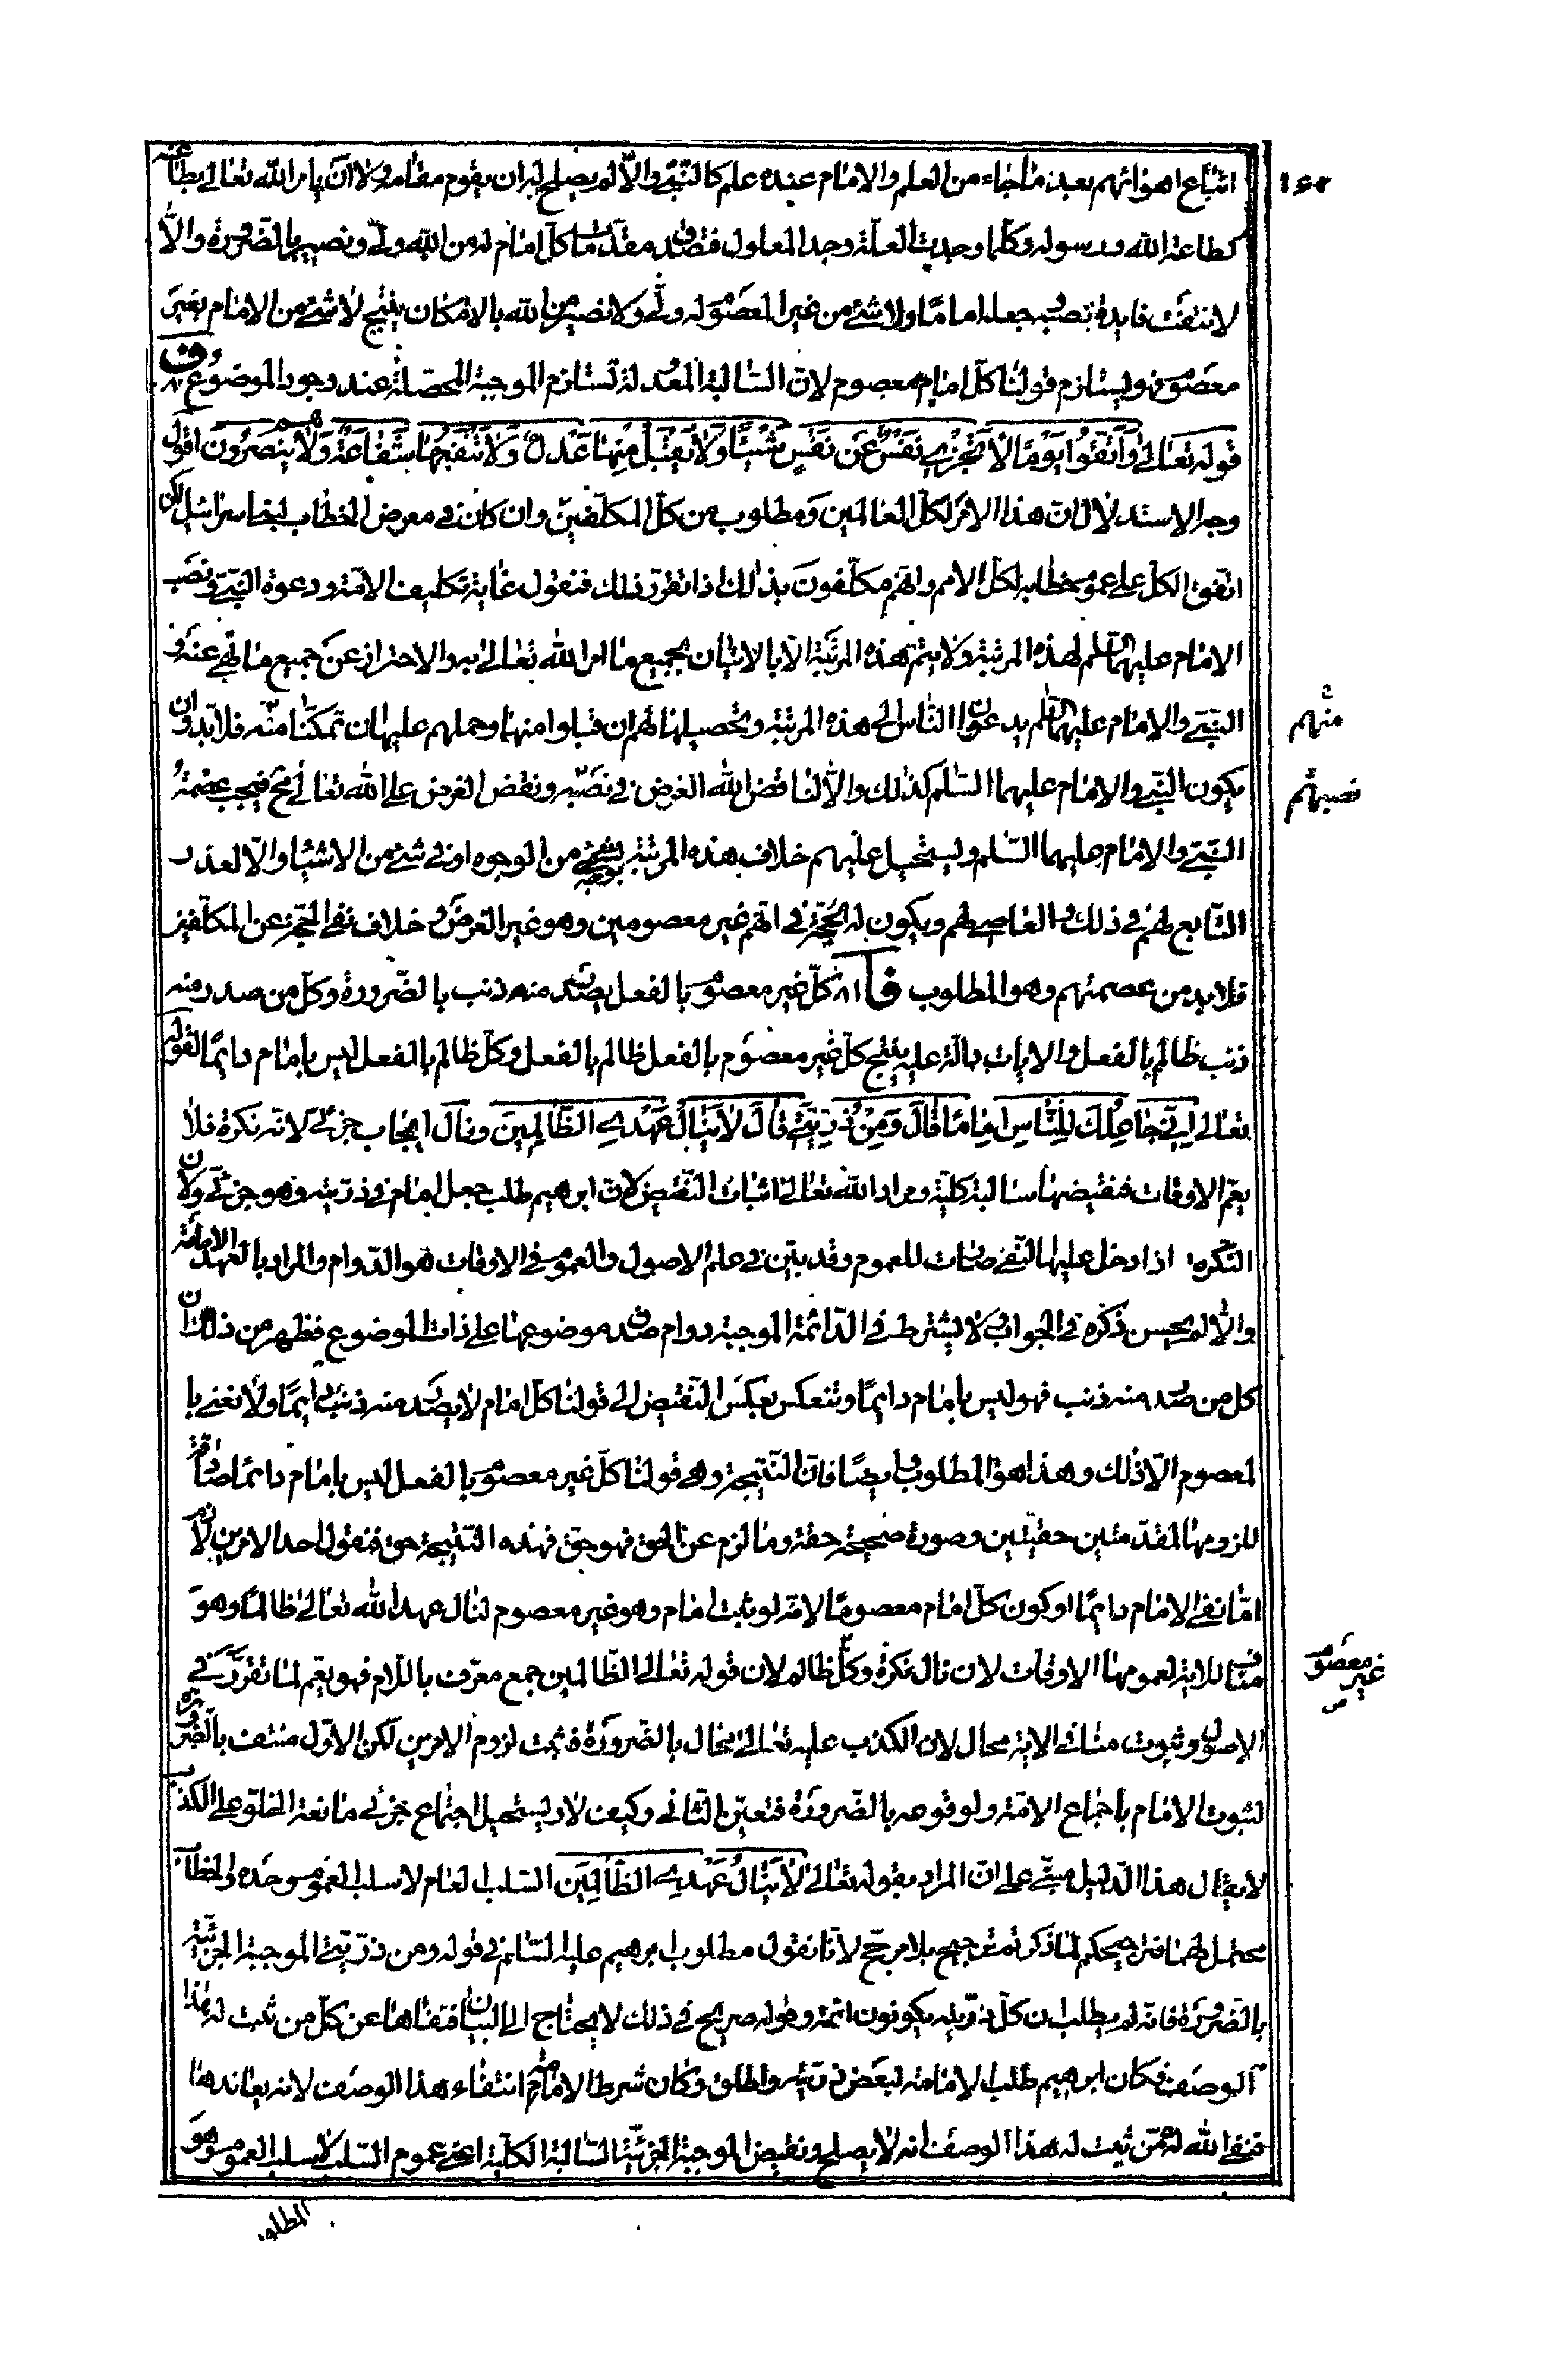 اتباع اهوائهم بعد ما جاءه من العلم والامام عنده علم كالنبي والا لم يصلح لان يقوم مقامه ولان يامر الله تعالى بطاعته
كطاعة الله ورسوله وكلما وجدت العلة وجد المعلول فتصدق مقدمتان كل امام له من الله ولي ونصير بالضرورة والا
لانتفت فايدة نصبه جعله اماما ولا شئ من غير المعصوم له ولي ولا نصير من الله بالامكان ينتج لا شئ من الامام بغير
معصوم فهو ليستلزم قولنا كل امام معصوم لان السالبة المعدولة تستلزم الموجبة المحصلة عند وجود الموضوع
قوله تعالى وَاتَّقُوا يَوْمًا لَا تَجْزِي نَفْسٌ عَن نَفْسٍ شَيْئًا وَلَا يُقْبَلُ مِنْهَا عَدْلٌ وَلَا تَنْفَعُهَا شَفَاعَةٌ وَلَا هُمْ يُنْصَرُونَ اقول
وجه الاستدلال ان هذا الامر لكل العالمين ومطلوب من كل المكلفين وان كان في معرض الخطاب لبني اسرائيل لكن
اتفق الكل على عموم خطابه لكل الامم وانهم مكلفون بذلك اذا تقرر ذلك فنقول غاية تكليف الامة ودعوة النبي ونصب
الامام عليهما السلم لهذه المرتبة ولا يتم هذه المرتبة الا بالاتيان بجميع ما امر الله تعالى به والاحتراز عن جميع ما نهى عنه و
النبي والامام عليهما السلم يدعوان الناس الى هذه المرتبة وتحصيلها لهم ان قبلوا منهما وحملهم عليها ان تمكنا منه فلا بد وان
منهم
يكون النبي والامام عليهما السلم كذلك والا لناقض الله الغرض في نصبه ونقض الغرض على الله تعالى مح فيجب عصمة
نصبهم
النبي والامام عليهما السلم ويستحيل عليهم خلاف هذه المرتبة بوجه من الوجوه او في شئ من الاشياء والا لعذر
التابع لهم في ذلك والعاصي لهم ويكون له الحجة في انهم غير معصومين وهو غير الغرض وخلاف نفي الحجة عن المكلفين
فلا بد من عصمتهم وهو المطلوب كل غير معصوم بالفعل يصدر منه ذنب بالضرورة وكل من صدر منه
ذنب ظالم بالفعل والايات دالة عليه ينتج كل غير معصوم بالفعل ظالم بالفعل وكل ظالم بالفعل ليس بامام دايما لقوله
تعالى اِنِّي جَاعِلُكَ لِلنَّاسِ اِمَامًا قَالَ وَمِنْ ذُرِّيَّتِي قَالَ لَا يَنَالُ عَهْدِي الظَّالِمِينَ ونال ايجاب جزئي لانه نكرة فلا
يعم الاوقات فنقيضها سالبة كلية ومراد الله تعالى اثبات النقيض لان ابرهيم طلب جعل امام في ذريته وهو جزئي ولان
النكرة اذا دخل عليها النفي صارت للعموم وقد بين في علم الاصول والعموم في الاوقات هو الدوام والمراد بالعهد الامامة
والا لم يحسن ذكره في الجواب ولا يشترط في الدائمة الموجبة دوام صدق موضوعها على ذات الموضوع فظهر من ذلك ان
كل من صدر منه ذنب فهو ليس بامام دايما وتنعكس بعكس النقيض الى قولنا كل امام لا يصدر منه ذنب دايما ولا نعني با
لمعصوم الا ذلك وهذا هو المطلوب وايضا فان النتيجة وهي قولنا كل غير معصوم بالفعل ليس بامام دائما صادقة
للزومها المقدمتين حقيتين وصورة صحيحة حقة وما لزم عن الحق فهو حق فهذه النتيجة حق فنقول احد الامرين لازم
اما نفي الامام دايما او كون كل امام معصوما لانه لو ثبت امام وهو غير معصوم لنال عهد الله تعالى ظالما وهو
مناف للاية لعمومها الاوقات لان نال نكرة وكل ظالم لان قوله تعالى الظالمين جمع معرف باللام فهو يعم لما تقرر في
غير معصوم
الاصول وثبوت منافي الاية محال لان الكذب عليه تعالى محال بالضرورة فثبت لزوم الامرين لكن الاول منتف بالضرورة
لثبوت الامام باجماع الامة ولوقوعه بالضرورة فتعين الثاني وكيف لا ويستحيل اجتماع جزئي مانعة الخلو على الكذب
لا يقال هذا الدليل مبني على ان المراد بقوله تعالى لَا يَنَالُ عَهْدِي الظَّالِمِينَ السلب العام لا سلب العموم وحده والخطاب
محتمل لهما فترجيحكم لما ذكرتم ترجيح بلا مرجح لانا نقول مطلوب ابرهيم عليه السلم في قوله ومن ذريتي الموجبة الجزئية
بالضرورة فانه لم يطلب ان كل ذريته يكونون ائمة وقوله صريح في ذلك لا يحتاج الى البيان فنفاها عن كل من ثبت له هذا
الوصف فكان ابرهيم طلب الامامة لبعض ذريته واطلق وكان شرط الامام انتفاء هذا الوصف لانه يعاندها
فنفى الله عمن ثبت له هذا الوصف انه لا يصلح ونقيض الموجبة الجزئية السالبة الكلية اعني عموم السلب لا سلب العموم وهو
المطلوب